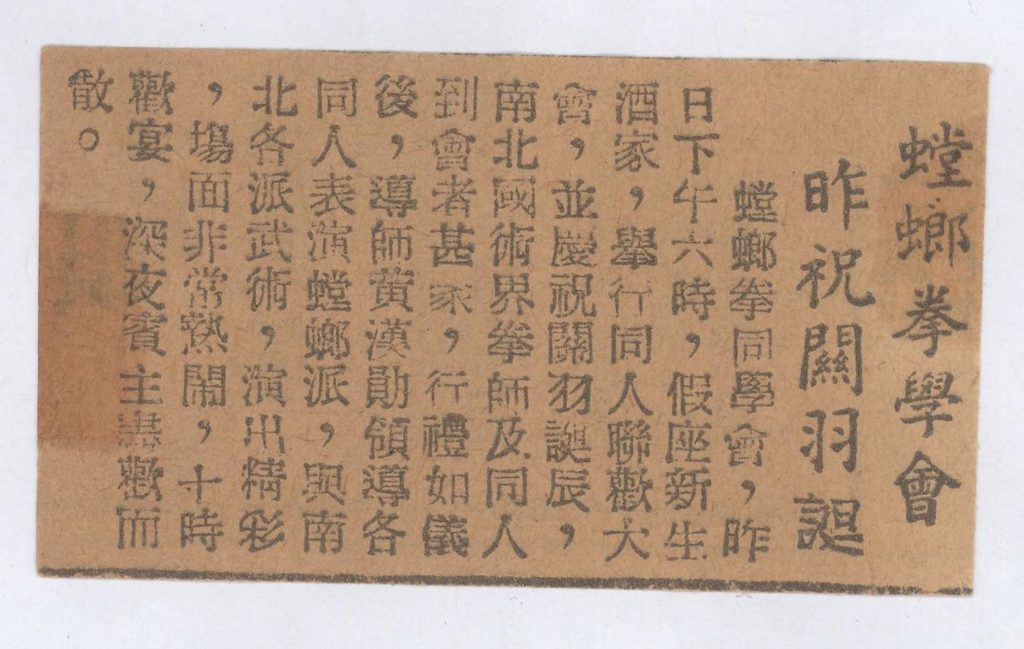 螳螂拳學會
昨祝關羽誕
螳螂拳同學會，昨
日下午六時，假座新生
酒家，舉行同人聯歡大
會，並慶祝關羽誕辰，
南北國術界拳師及同人
到會者甚衆，行禮如儀
後，導師黃漢勛領導各
同人表演螳螂派，與南
北各派武術，演出精彩
，場面非常熱鬧，十時
歡宴，深夜賓主盡歡而
散。